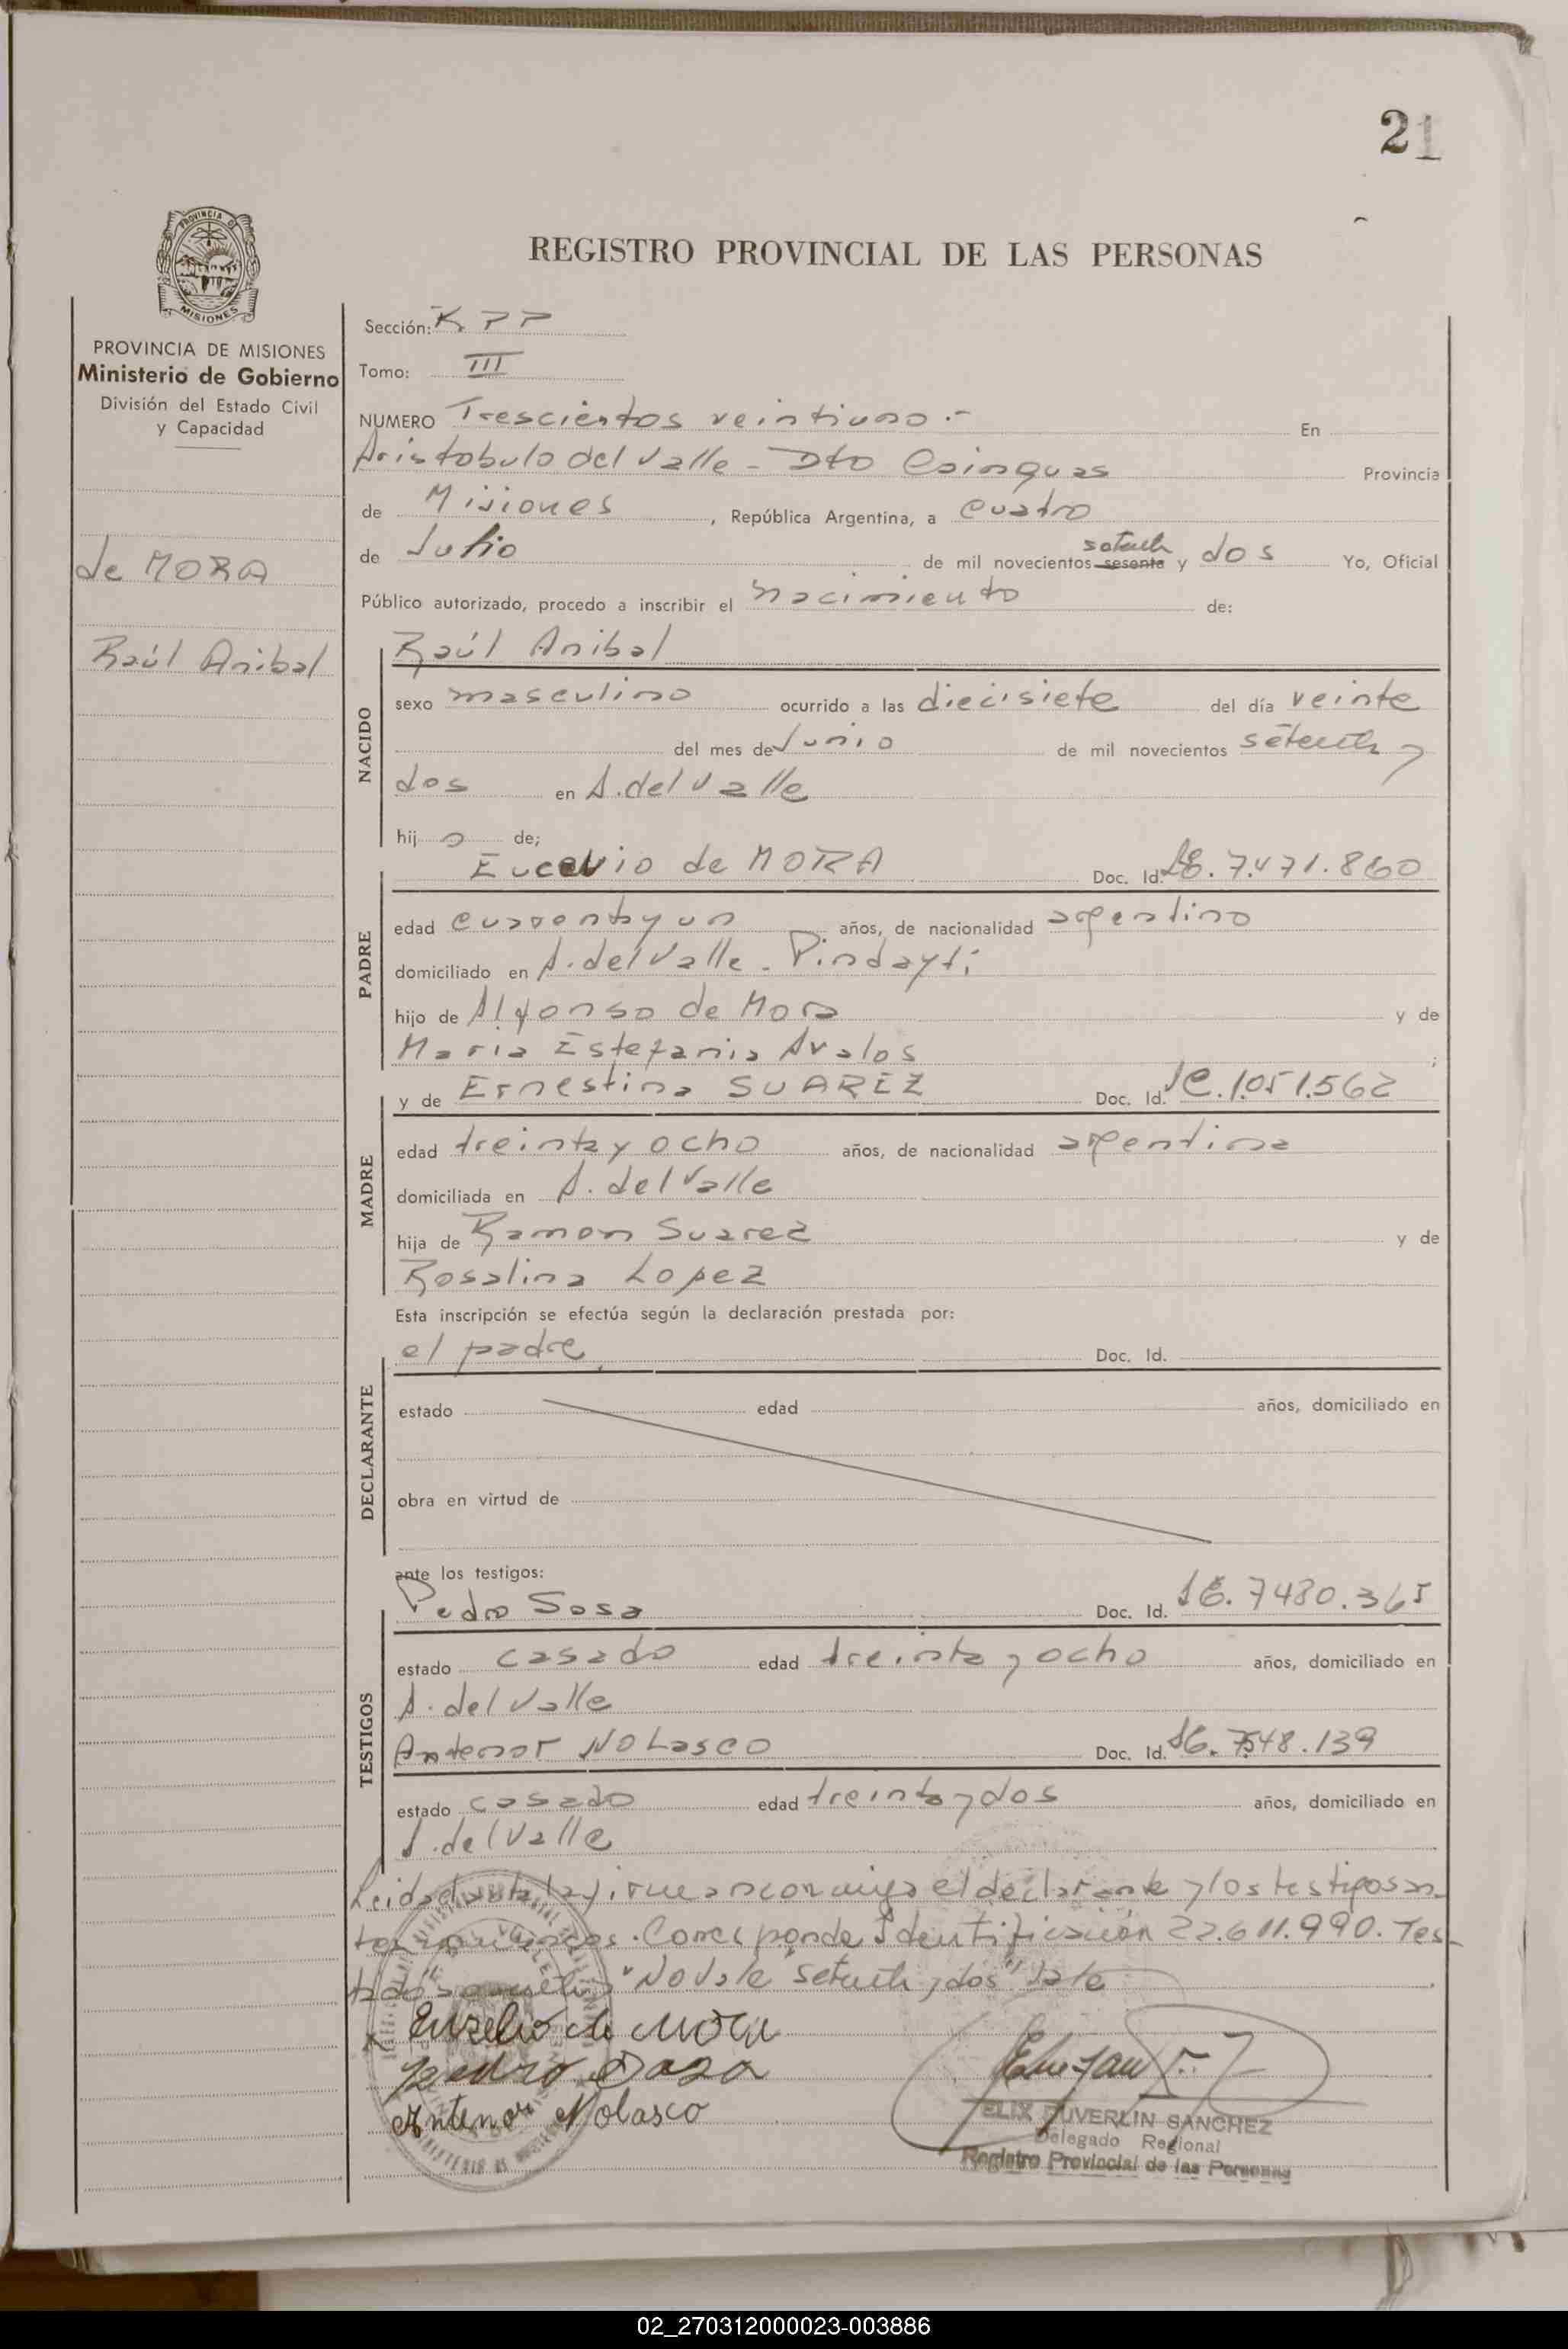 21
PROVINCIA DE
MISIONES
PROVINCIA DE MISIONES
Ministerio de Gobierno
División del Estado Civil
y Capacidad
de MORA
Raúl Anibal
REGISTRO PROVINCIAL DE LAS PERSONAS
Sección:
Tomo: III
NUMERO Trescientos veintiuno.- En
Aristobulo del Valle - Dto Cainguas Provincia
de Misiones, República Argentina, a cuatro
de Julio de mil novecientos sesenta setenta y dos Yo, Oficial
Público autorizado, procedo a inscribir el nacimiento de:
NACIDO
Raúl Anibal
sexo masculino ocurrido a las diecisiete del día veinte
del mes de Junio de mil novecientos setenta y
dos en A. del Valle
hijo de;
PADRE
de MORA Doc. Id. 7.471.860
edad cuarenta y un años, de nacionalidad argentino
domiciliado en A. del Valle - Pindayti
hijo de Alfonso de Mora y de
Maria Estefania Avalos ;
MADRE
y de Ernestina SUAREZ Doc. Id. 1.051.562
edad treinta y ocho años, de nacionalidad argentina
domiciliada en A. del Valle
hija de Ramon Suarez y de
Rosalina Lopez
Esta inscripción se efectúa según la declaración prestada por:
DECLARANTE
el padre Doc. Id.
estado edad años, domiciliado en
obra en virtud de
ante los testigos:
TESTIGOS
Pedro Sosa Doc. Id. 7480.365
estado casado edad treinta y ocho años, domiciliado en
A. del Valle
Antenor NOLASCO Doc. Id. 48.139
estado casado edad treinta y dos años, domiciliado en
A. del Valle
Leida el acta la firman conmigo el declarante y los testigos an-
tes. Corresponde Identificación 22.611.990. Tes-
tado "No Vale "setenta y dos" Vale
x Euzebio de Mora
Pedro Sosa
Antenor Nolasco
FELIX DUVERLIN SANCHEZ
Delegado Regional
Registro Provincial de las Personas
02_270312000023-003886